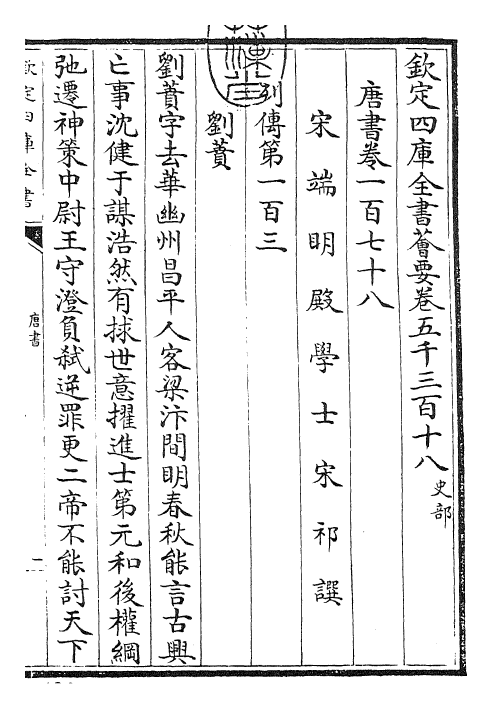 欽定四庫全書薈要卷五千三百十八 史部
唐書卷一百七十八
宋端明殿學士宋祁譔
列傳第一百三
劉蕡
劉蕡字去華幽州昌平人客梁汴間明春秋能言古興
亡事沈健于謀浩然有捄世意擢進士第元和後權綱
弛遷神策中尉王守澄負弑逆罪更二帝不能討天下
欽定四庫全書
唐書